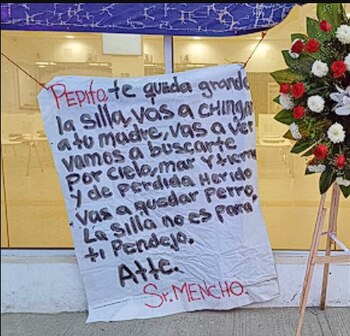 Pepito, te queda grande
la silla, vas a chingar
a tu madre, vas a ver
vamos a buscarte
por cielo, mar y tierra
y de perdida Herido
vas a quedar perro,
La silla no es para
ti Pendejo.
Atte.
Sr. MENCHO.